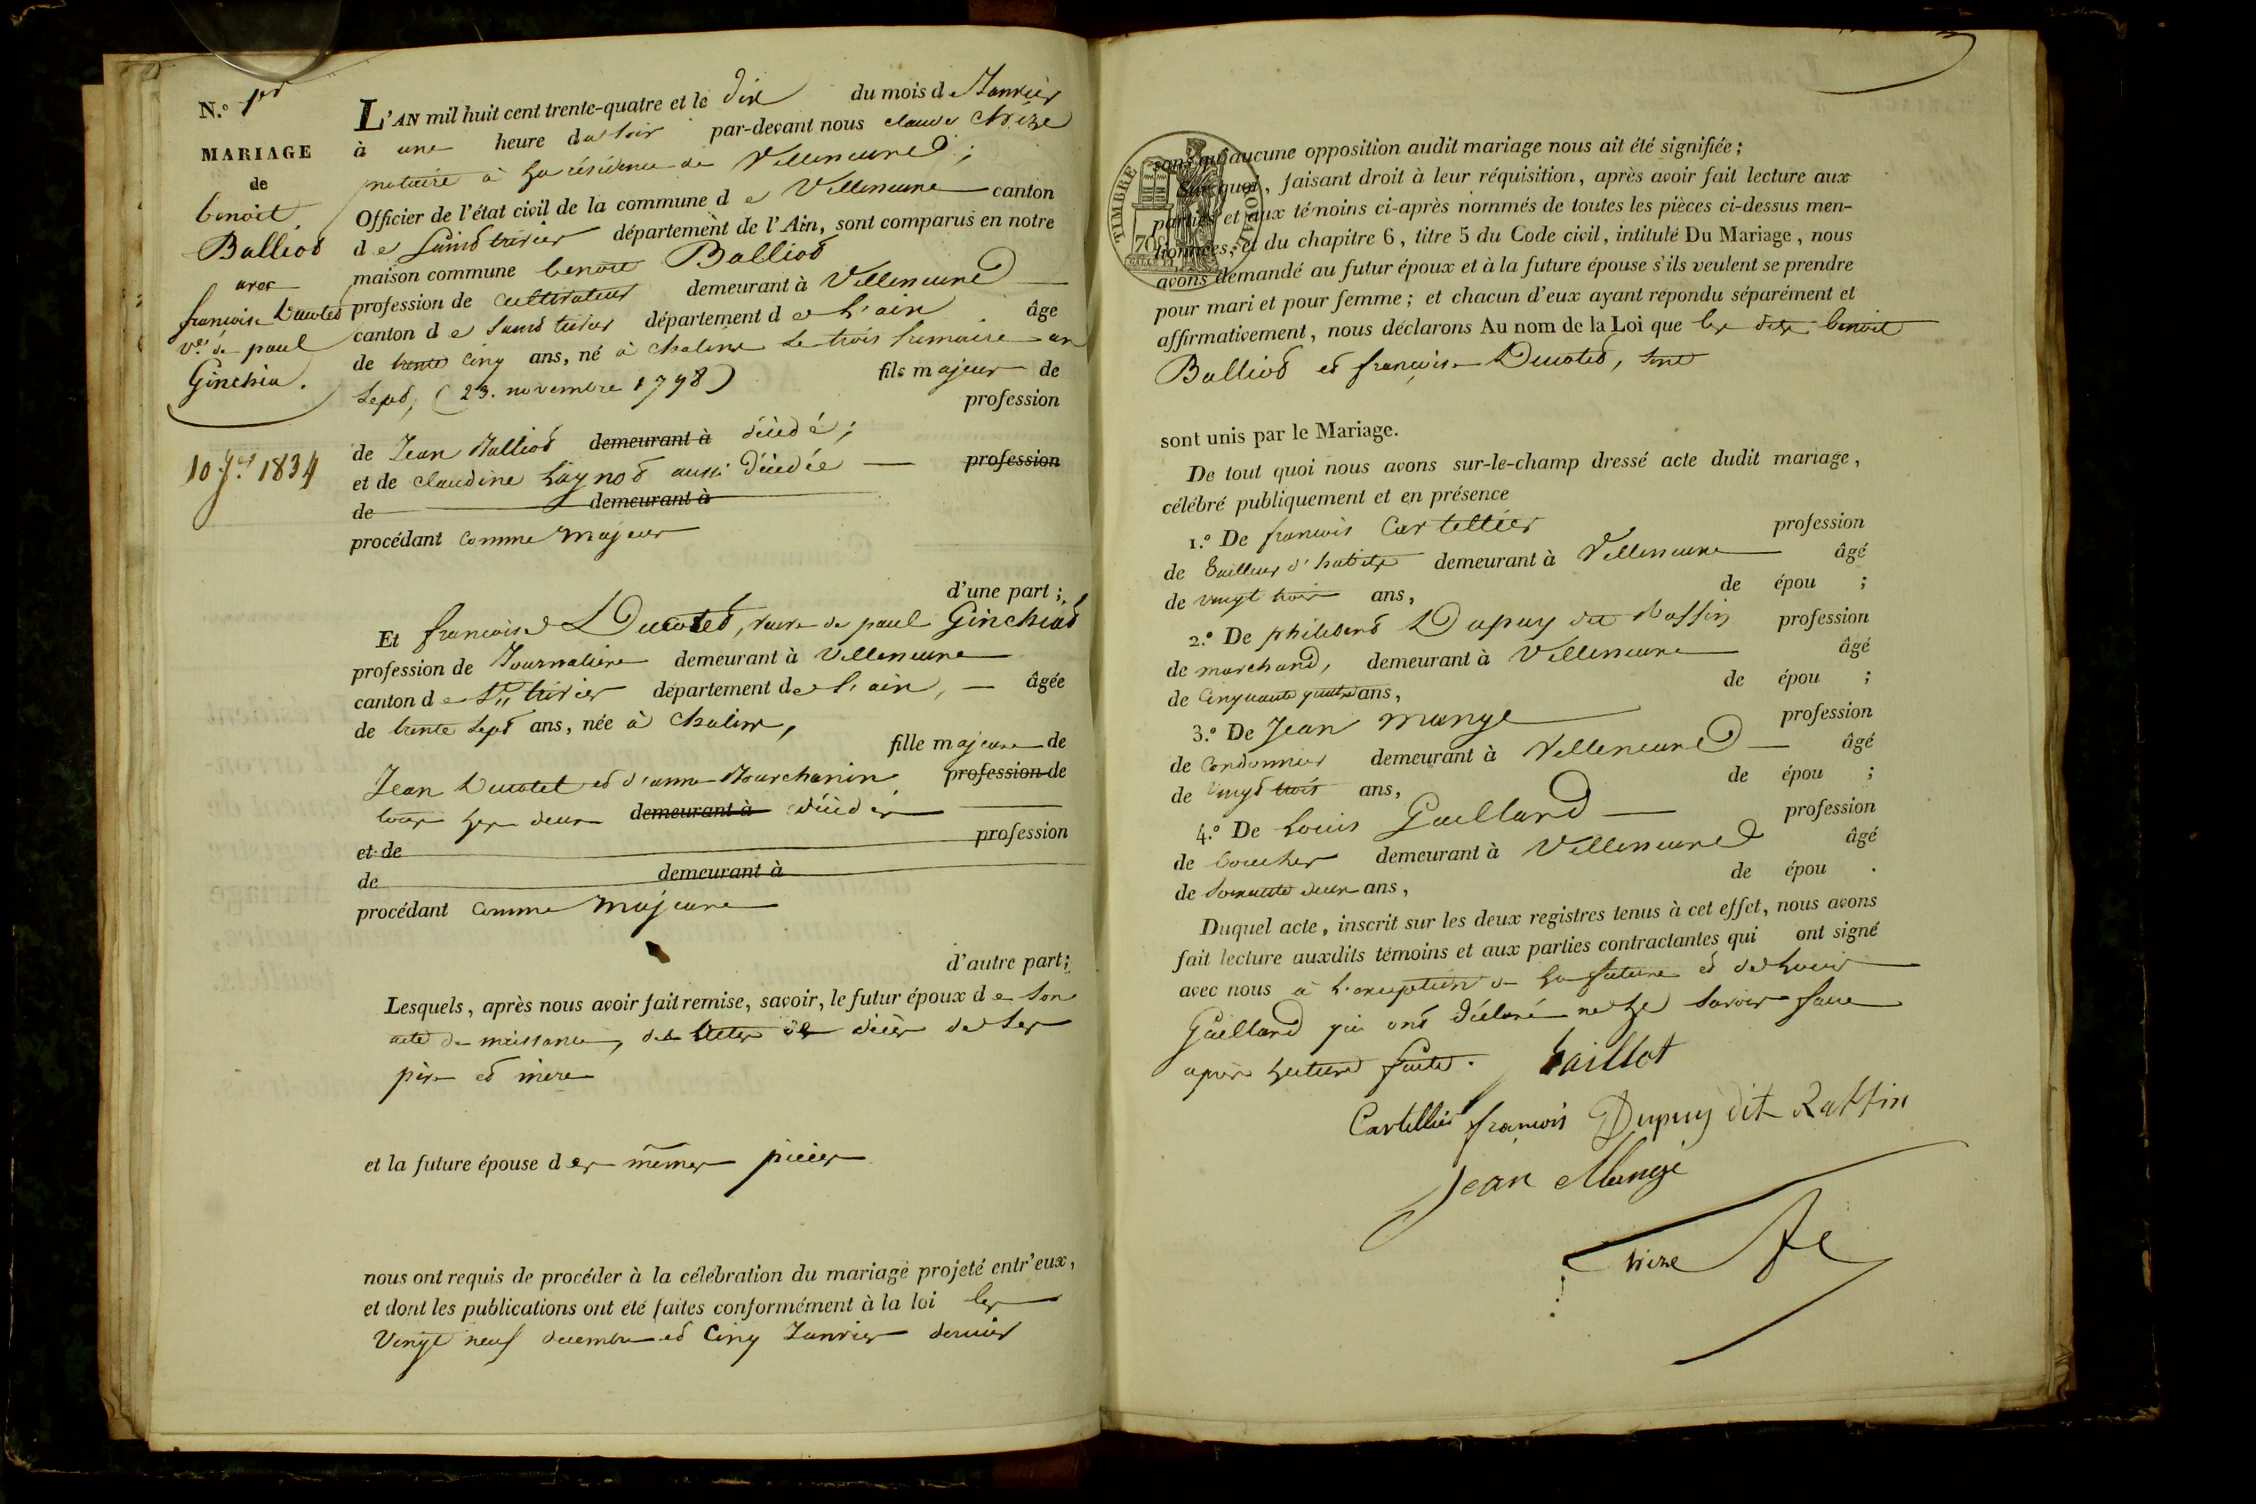 N.º 1er
MARIAGE
de
benoit
Balliod
avec
francoise Ducoted
ve. de paul
Ginchia.
10 Jer. 1834
L'AN mil huit cent trente-quatre et le dix du mois de Janvier
à une heure du soir par-devant nous claude Chize
notaire à la résidence de Villeneuve;
Officier de l'état civil de la commune de Villeneuve canton
de Saint trivier département de l'Ain, sont comparus en notre
maison commune benoit Balliod
profession de cultivateur demeurant à Villeneuve
canton de Saint trivier département de L'ain âge
de trente cinq ans, né à chaleins le trois frimaire an
Sept, (23. novembre 1798) fils majeur de
profession
de Jean Balliod demeurant à décédé;
et de claudine Laynod aussi décédée profession
de demeurant à
procédant comme majeur
d'une part;
Et francoise Ducoted, veuve de paul Ginchiad
profession de Journaliere demeurant à Villeneuve
canton de St. trivier département de L'ain, âgée
de trente sept ans, née à chaleins,
fille majeure de
Jean Ducotet et d'anne Bourchanin profession de
tous les deux demeurant à décédés
et de profession
de demeurant à
procédant comme majeure
d'autre part;
Lesquels, après nous avoir fait remise, savoir, le futur époux de Son
acte de naissance, des actes de décès de Ses
père et mère
et la future épouse des mêmes pièces
nous ont requis de procéder à la célébration du mariage projeté entr'eux,
et dont les publications ont été faites conformément à la loi les
Vingt neuf decembre et Cinq Janvier dernier
TIMBRE ROYAL
70c
sans qu'aucune opposition audit mariage nous ait été signifiée;
Sur quoi, faisant droit à leur réquisition, après avoir fait lecture aux
parties et aux témoins ci-après nommés de toutes les pièces ci-dessus men-
tionnées, et du chapitre 6, titre 5 du Code civil, intitulé Du Mariage, nous
avons demandé au futur époux et à la future épouse s'ils veulent se prendre
pour mari et pour femme; et chacun d'eux ayant répondu séparément et
affirmativement, nous déclarons Au nom de la Loi que les dits benoit
Balliod et françoise Ducoted, sont
sont unis par le Mariage.
De tout quoi nous avons sur-le-champ dressé acte dudit mariage,
célébré publiquement et en présence
1.º De francois Cartellier profession
de tailleur d'habits demeurant à Villeneuve âgé
de vingt trois ans, de épou ;
2.º De philiberd Dupuy dit Raffin profession
de marchand, demeurant à Villeneuve âgé
de Cinquante quatre ans, de épou ;
3.º De Jean mange profession
de Cordonnier demeurant à Villeneuve âgé
de vingt trois ans, de épou ;
4.º De Louis Gaillard profession
de boucher demeurant à Villeneuve âgé
de Soixante deux ans, de épou .
Duquel acte, inscrit sur les deux registres tenus à cet effet, nous avons
fait lecture auxdits témoins et aux parties contractantes qui ont signé
avec nous à L'exception de la future et de Louis
Gaillard qui ont déclaré ne le Savoir faire
après Lecture faite. baillot
Cartellier francois Dupuy dit Raffin
Jean Mange
Chize